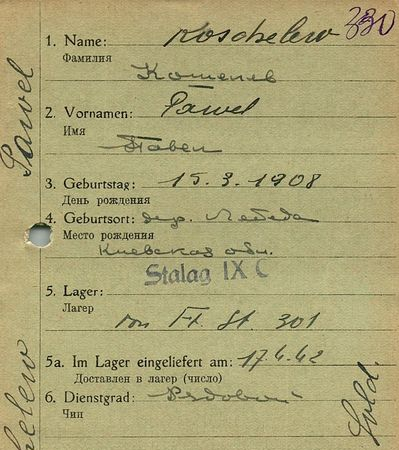 330
1. Name: Koschelew
Фамилия
Кошелев
2. Vornamen: Pawel
Имя
Павел
3. Geburtstag: 15. 3. 1908
День рождения
4. Geburtsort: дер. Лебеда
Место рождения
Киевская обл.
Stalag IX C
5. Lager:
Лагер
von Ft. St. 301
5a. Im Lager eingeliefert am: 17.4.42
Доставлен в лагер (число)
6. Dienstgrad: Рядовой
Чин
Pawel
elew
Sold.